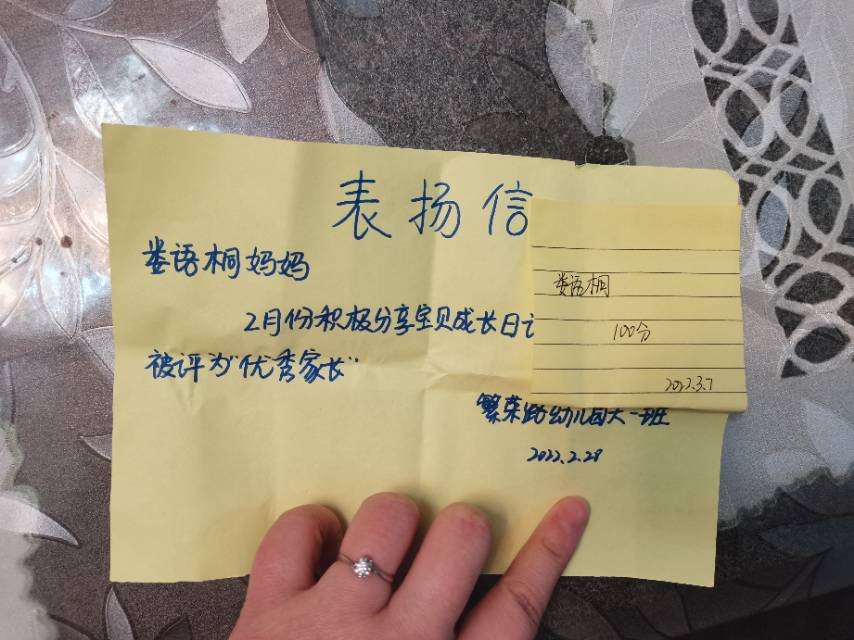 表扬信
娄语桐妈妈
2月份积极分享宝贝成长日
被评为"优秀家长"
繁荣路幼儿园大一班
2022.2.28
娄语桐
100分
2022.3.7